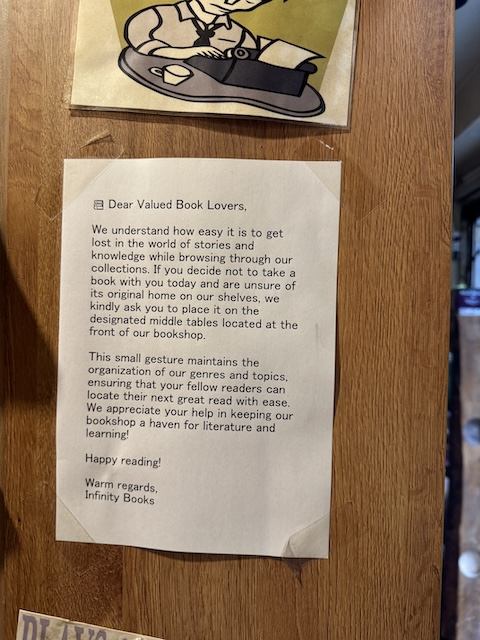 Dear Valued Book Lovers,
We understand how easy it is to get
lost in the world of stories and
knowledge while browsing through our
collections. If you decide not to take a
book with you today and are unsure of
its original home on our shelves, we
kindly ask you to place it on the
designated middle tables located at the
front of our bookshop.
This small gesture maintains the
organization of our genres and topics,
ensuring that your fellow readers can
locate their next great read with ease.
We appreciate your help in keeping our
bookshop a haven for literature and
learning!
Happy reading!
Warm regards,
Infinity Books